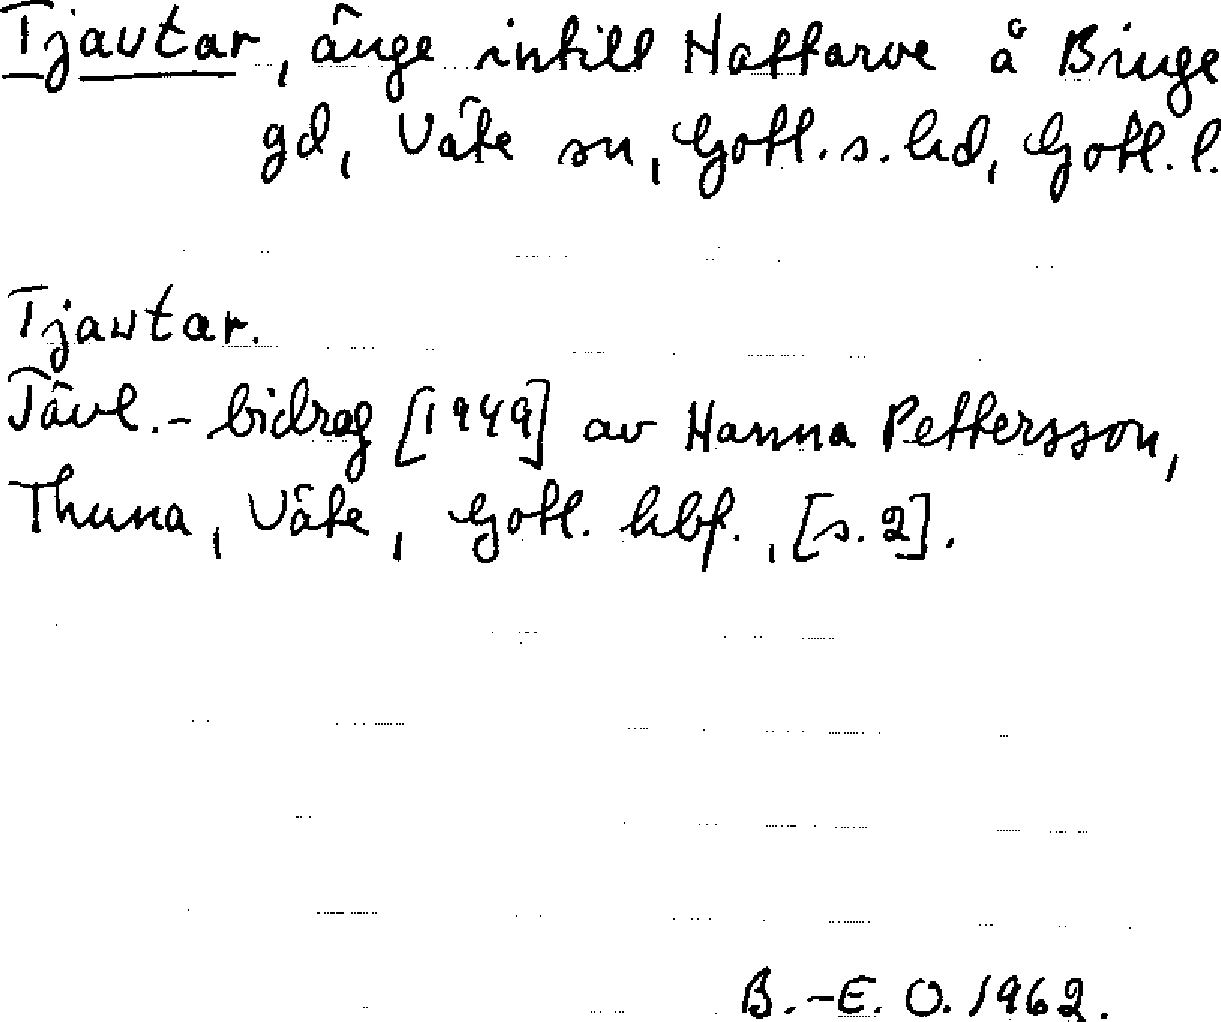 Tjautar, änge intill Hattarve å Binge
gd, Väte sn, Gotl. s. hd, Gotl. l.
Tjautar.
Tävl.-bidrag [1949] av Hanna Pettersson,
Thuna, Väte, Gotl. hbf., [s. 2].
B.-E. O. 1962.